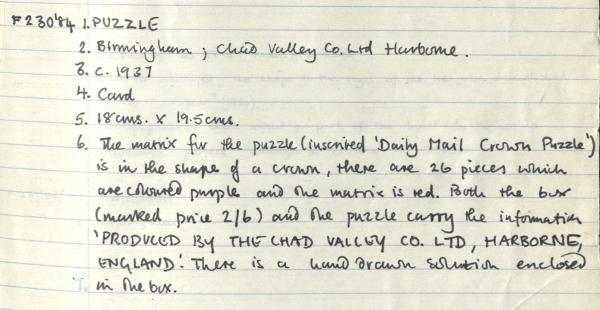 F230'84 1. PUZZLE
2. Birmingham ; Chad Valley Co. Ltd Harborne.
3. c. 1937
4. Card
5. 18cms. x 19.5cms.
6. The matrix for the puzzle (inscribed 'Daily Mail Crown Puzzle')
is in the shape of a crown, there are 26 pieces which
are coloured purple and the matrix is red. Both the box
(marked price 2/6) and the puzzle carry the information
'PRODUCED BY THE CHAD VALLEY CO. LTD, HARBORNE,
ENGLAND'. There is a hand drawn solution enclosed
7. in the box.